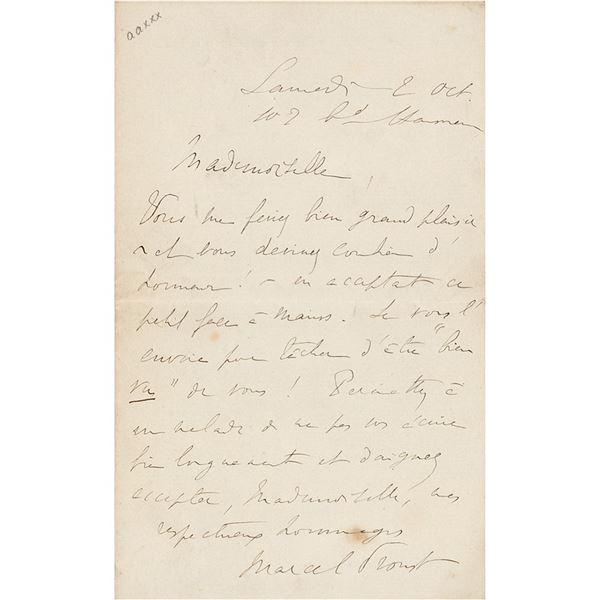 aaxxx
Samedi 2 Oct.
102 bd Haussman
Mademoiselle
Vous me feriez bien grand plaisir
– et vous devinez combien d'
honneur ! – en acceptant ce
petit face à mains. Je vous l'
envoie pour tâcher d'être "bien
vu" de vous ! Permettez à
un malade de ne pas vous écrire
bien longuement et daignez
accepter, Mademoiselle, mes
respectueux hommages
Marcel Proust